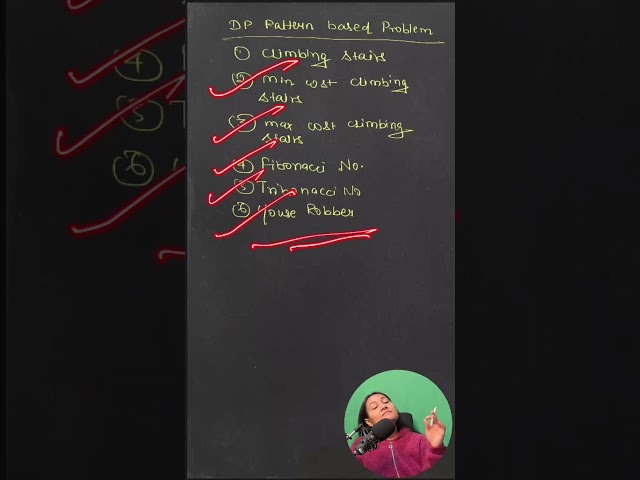 DP Pattern based Problem
① Climbing Stairs
② min cost climbing
stairs
③ max cost climbing
stairs
④ Fibonacci No.
⑤ Tribonacci No
⑥ House Robber
④
⑤ T
⑥